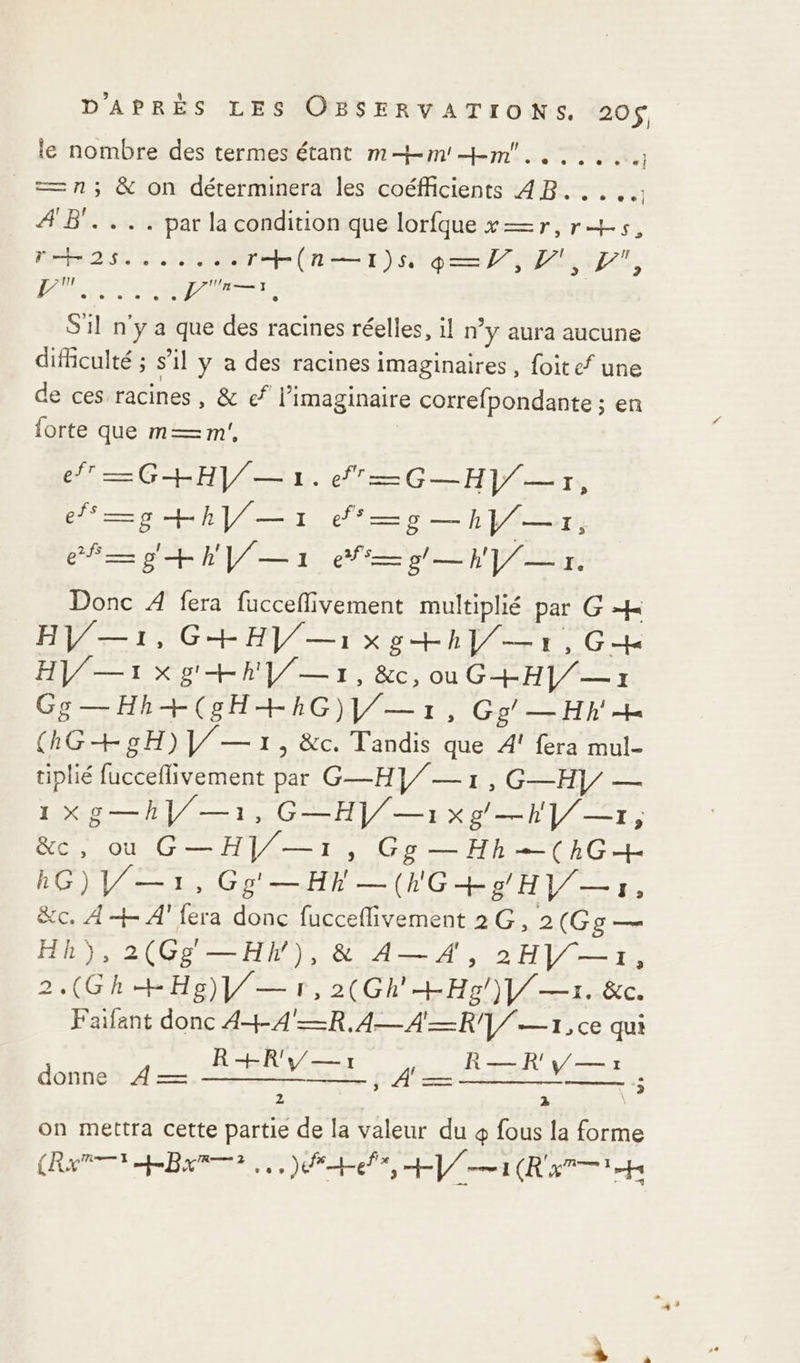 D'APRÈS LES OBSERVATIONS. 205
le nombre des termes étant m+m'+m".......
=n; & on déterminera les coéfficients AB......
A'B'.... par la condition que lorſque x=r, r+s,
r+2s........r+(n—1)s. φ=V, V', V",
V'''......V'''n—1,
S'il n'y a que des racines réelles, il n'y aura aucune
difficulté; s'il y a des racines imaginaires, ſoit ef une
de ces racines, & ef' l'imaginaire correſpondante; en
ſorte que m=m',
efr=G+H√—1. ef'r=G—H√—1,
efs=g+h√—1 ef's=g—h√—1,
e2fs=g'+h'√—1 e2f's=g'—h'√—1.
Donc A ſera ſucceſſivement multiplié par G+
H√—1, G+H√—1×g+h√—1, G+
H√—1×g'+h'√—1, &c, ou G+H√—1
Gg—Hh+(gH+hG)√—1, Gg'—Hh'+
(hG+gH)√—1, &c. Tandis que A' ſera mul-
tiplié ſucceſſivement par G—H√—1, G—H√—
1×g—h√—1, G—H√—1×g'—h'√—1,
&c, ou G—H√—1, Gg—Hh—(hG+
hG)√—1, Gg'—Hh'—(h'G+g'H√—1,
&c. A+A' ſera donc ſucceſſivement 2G, 2(Gg—
Hh), 2(Gg'—Hh'), & A—A', 2H√—1,
2.(Gh+Hg)√—1, 2(Gh'+Hg')√—1. &c.
Faiſant donc A+A'=R.A—A'=R'√—1,ce qui
donne A=R+R'√—1/2, A'=R—R'√—1/2;
on mettra cette partie de la valeur du φ ſous la forme
(Rxm—1+Bxm—2...)efx+ef'x,+√—1(R'xm—1+